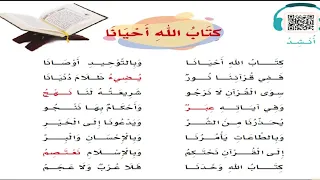 كِتَابُ اللهِ أَحْيَانَا
أُنْشِدُ
كِتَابُ اللهِ أَحْيَانَا وَبِالتَّوْحِيدِ أَوْصَانَا
فَفِي قُرْآنِنَا نُورٌ يُضِيءُ ظَلَامَ دُنْيَانَا
سِوَى الْقُرْآنِ لَا نَرْجُو شَرِيعَتُهُ لَنَا نَهْجٌ
وَفِي آيَاتِهِ عِبَرٌ وَأَحْكَامٌ بِهَا نَنْجُو
يُحَذِّرُنَا مِنَ الشَّرِّ وَيَدْعُونَا إِلَى الْخَيْرِ
وَبِالطَّاعَاتِ يَأْمُرُنَا وَبِالْإِحْسَانِ وَالْبِرِّ
إِلَى الْقُرْآنِ نَحْتَكِمُ وَبِالْإِسْلَامِ نَعْتَصِمُ
كِتَابُ اللهِ وَحَّدَنَا فَلَا عُرْبٌ وَلَا عَجَمُ